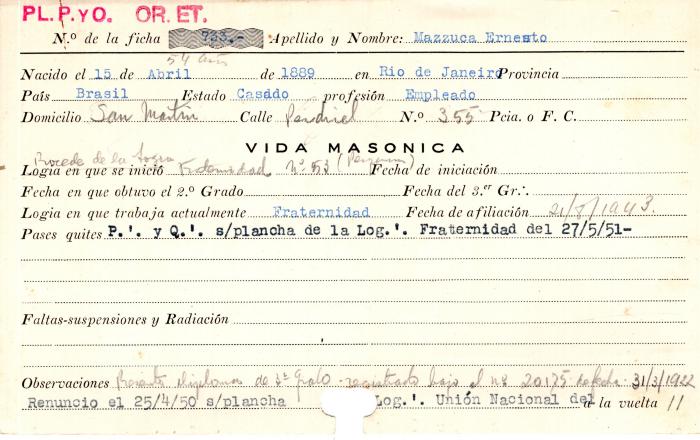 PL.P.YO. OR.ET.
N.º de la ficha 733.- Apellido y Nombre: Mazzuca Ernesto
54 años
Nacido el 15 de Abril de 1889 en Rio de Janeiro Provincia
País Brasil Estado Casado profesión Empleado
Domicilio San Martin Calle N.º 355 Pcia. o F. C.
VIDA MASONICA
Procede de la Logia
Logia en que se inició Fraternidad Nº 53 Fecha de iniciación
Fecha en que obtuvo el 2.º Grado Fecha del 3.er Gr∴
Logia en que trabaja actualmente Fraternidad Fecha de afiliación 21/8/1943.
Pases quites P.'. y Q.'. s/plancha de la Log.'. Fraternidad del 27/5/51-
Faltas-suspensiones y Radiación
Observaciones Presenta diploma de 3er Grado - registrado bajo el nº 20175 de fecha 31/3/1922
Renuncio el 25/4/50 s/plancha Log.'. Unión Nacional del a la vuelta //